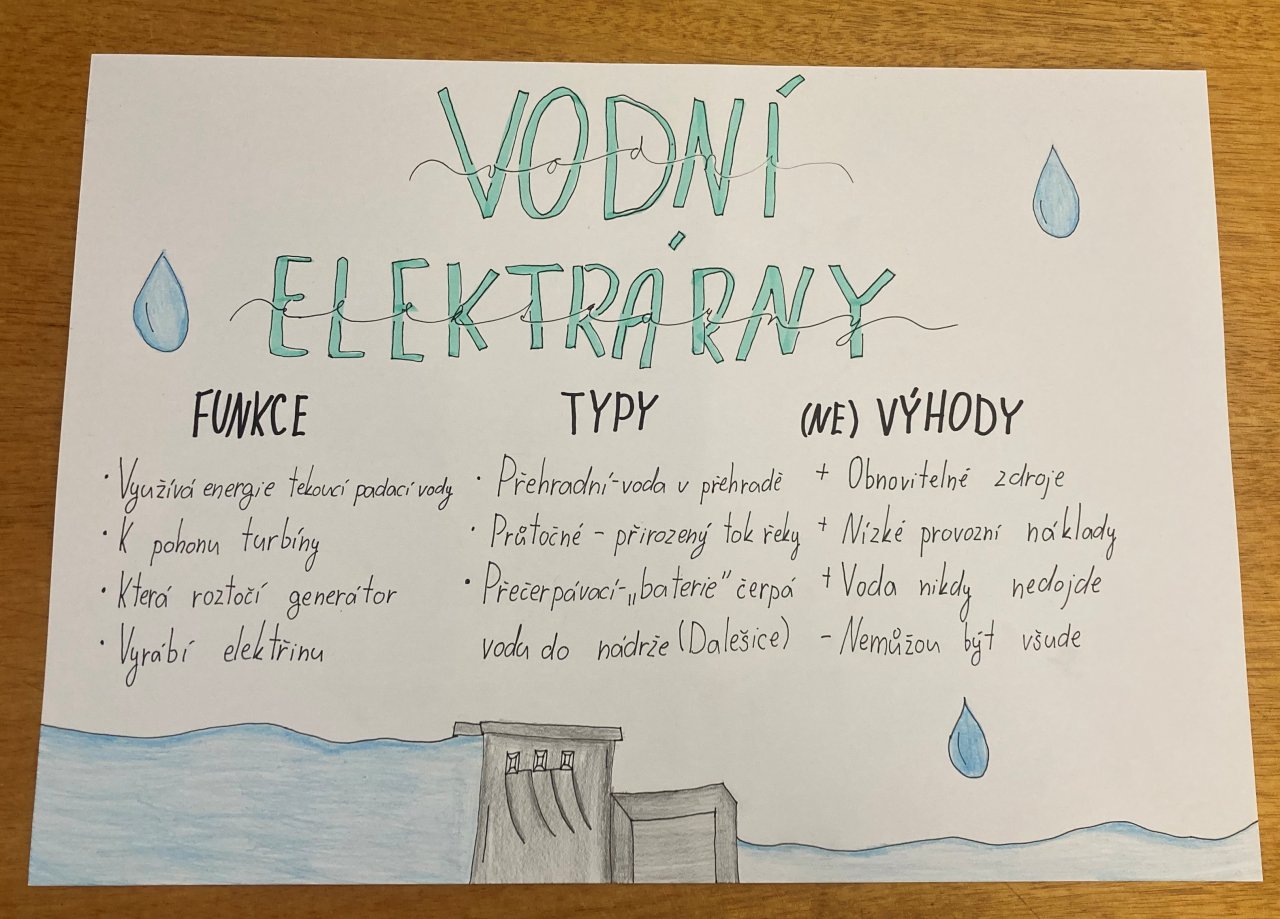 VODNÍ
vodní
ELEKTRÁRNY
elektrárny
FUNKCE
· Využívá energie tekoucí padací vody
· K pohonu turbíny
· Která roztočí generátor
· Vyrábí elektřinu
TYPY
· Přehradní-voda v přehradě
· Průtočné - přirozený tok řeky
· Přečerpávací-„baterie" čerpá
vodu do nádrže (Dalešice)
(NE) VÝHODY
+ Obnovitelné zdroje
+ Nízké provozní náklady
+ Voda nikdy nedojde
- Nemůžou být všude